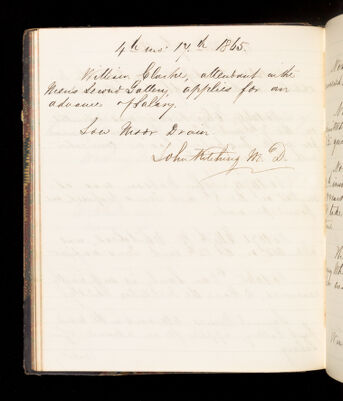 4th mo: 17.th 1865.
William Clarke, attendant in the
Men's Second Gallery, applies for an
advance of Salary.
Low Moor Drain
John Kitching M.D.